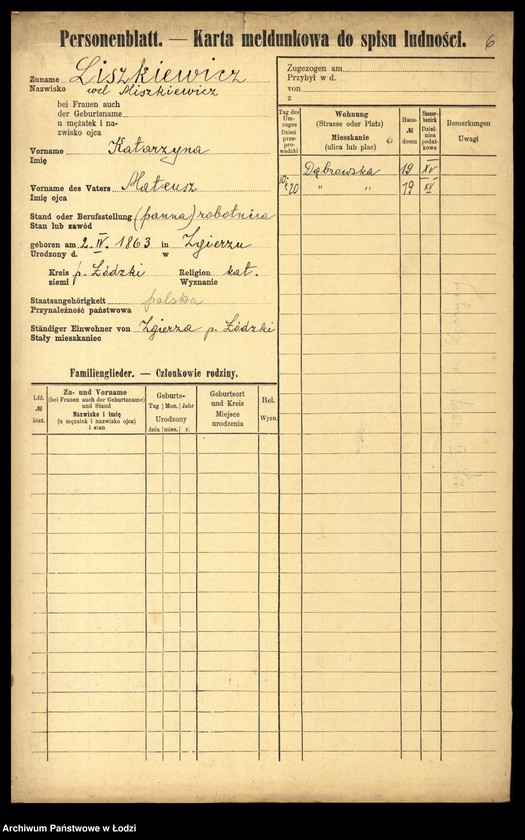 Personenblatt. — Karta meldunkowa do spisu ludności. 6
Zuname Liszkiewicz
Nazwisko vel Miszkiewicz
bei Frauen auch
der Geburtsname
u mężatek i na-
zwisko ojca
Vorname Katarzyna
Imię
Vorname des Vaters Mateusz
Imię ojca
Stand oder Berufsstellung (panna) robotnica
Stan lub zawód
geboren am 2. IV. 1863 in Zgierzu
Urodzony d. w
Kreis p. Łódzki Religion kat.
ziemi Wyznanie
Staatsangehörigkeit polska
Przynależność państwowa
Ständiger Einwohner von Zgierza p. Łódzki
Stały mieszkaniec
Familienglieder. — Członkowie rodziny.
Lfd. № bież.
Zu- und Vorname
(bei Frauen auch der Geburtsname)
und Stand
Nazwisko i imię
(u mężatek i nazwisko ojca)
i stan
Geburts-
Tag Mon. Jahr
Urodzony
dnia mies. r.
Geburtsort
und Kreis
Miejsce
urodzenia
Rel.
Wyzn.
Zugezogen am
Przybył w d.
von
z
Tag des
Um-
zuges
Dzień
prze-
prowadzki
Wohnung
(Strasse oder Platz)
Mieszkanie
(ulica lub plac)
Haus-
№
domu
Steuer-
bezirk
Dzielnica
podatkowa
Bemerkungen
Uwagi
Dąbrowska 19 XV
20 " " 19 XV
Archiwum Państwowe w Łodzi